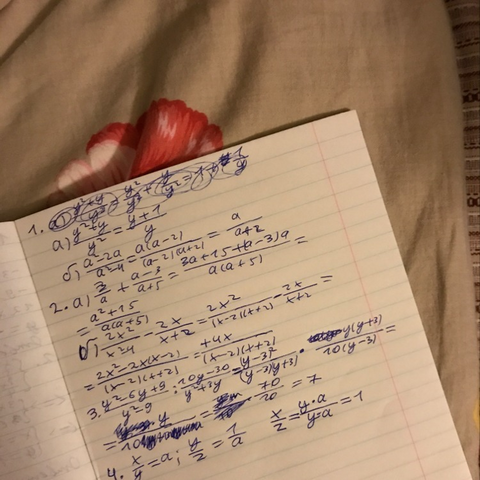 1. а) (y²+y)/y³ = y²/y³ + y/y² = 1 + 1/y
а) (y²+y)/y² = (y+1)/y
б) (a²-2a)/(a²-4) = a(a-2)/((a-2)(a+2)) = a/(a+2)
2. а) 3/a + (a-3)/(a+5) = (3a+15+(a-3)a)/(a(a+5)) =
= (a²+15)/(a(a+5))
б) 2x²/(x²-4) - 2x/(x+2) = 2x²/((x-2)(x+2)) - 2x/(x+2) =
= (2x²-2x(x-2))/((x-2)(x+2)) = +4x/((x-2)(x+2))
3. (y²-6y+9)/(y²-9) : (10y-30)/(y²+3y) = (y-3)²/((y-3)(y+3)) · y(y+3)/(10(y-3)) =
= y/10 = 70/10 = 7
4. x/y = a; y/z = 1/a x/z = (y·a)/(y·a) = 1